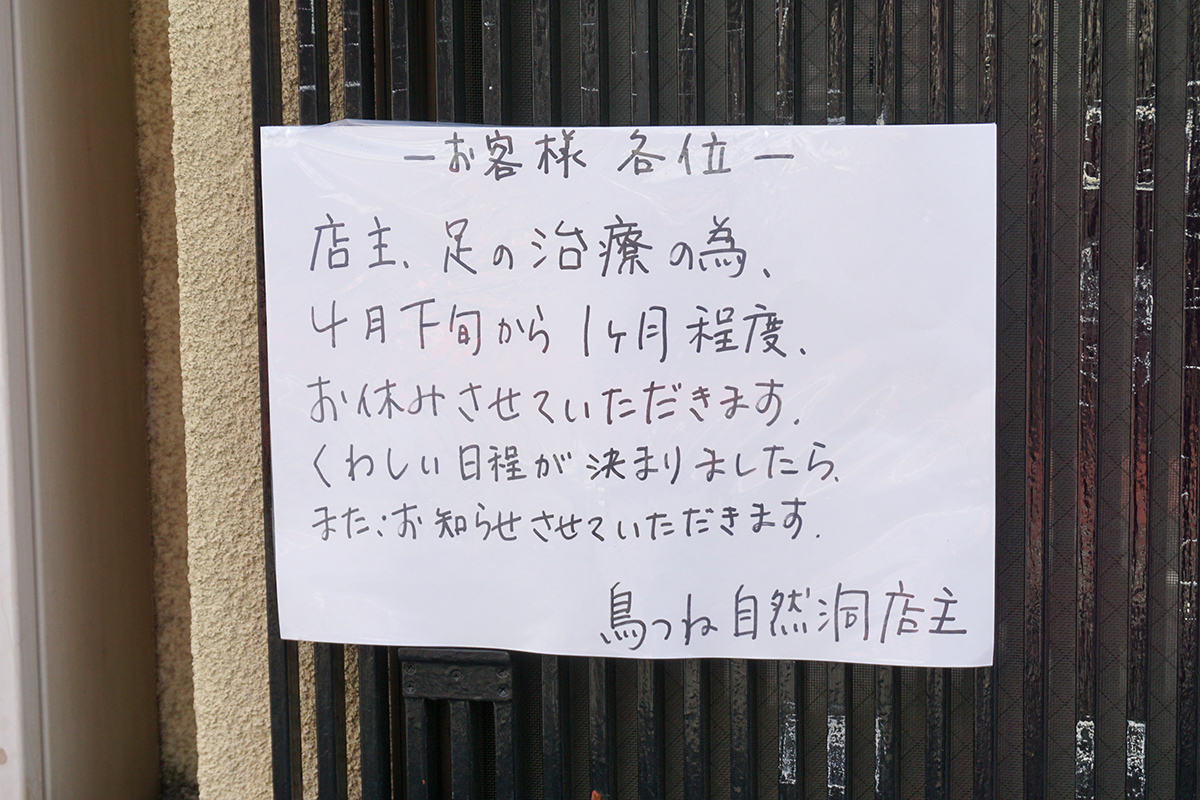 ーお客様 各位ー
店主、足の治療の為、
4月下旬から1ヶ月程度、
お休みさせていただきます。
くわしい日程が決まりましたら、
また、お知らせさせていただきます。
鳥つね自然洞店主